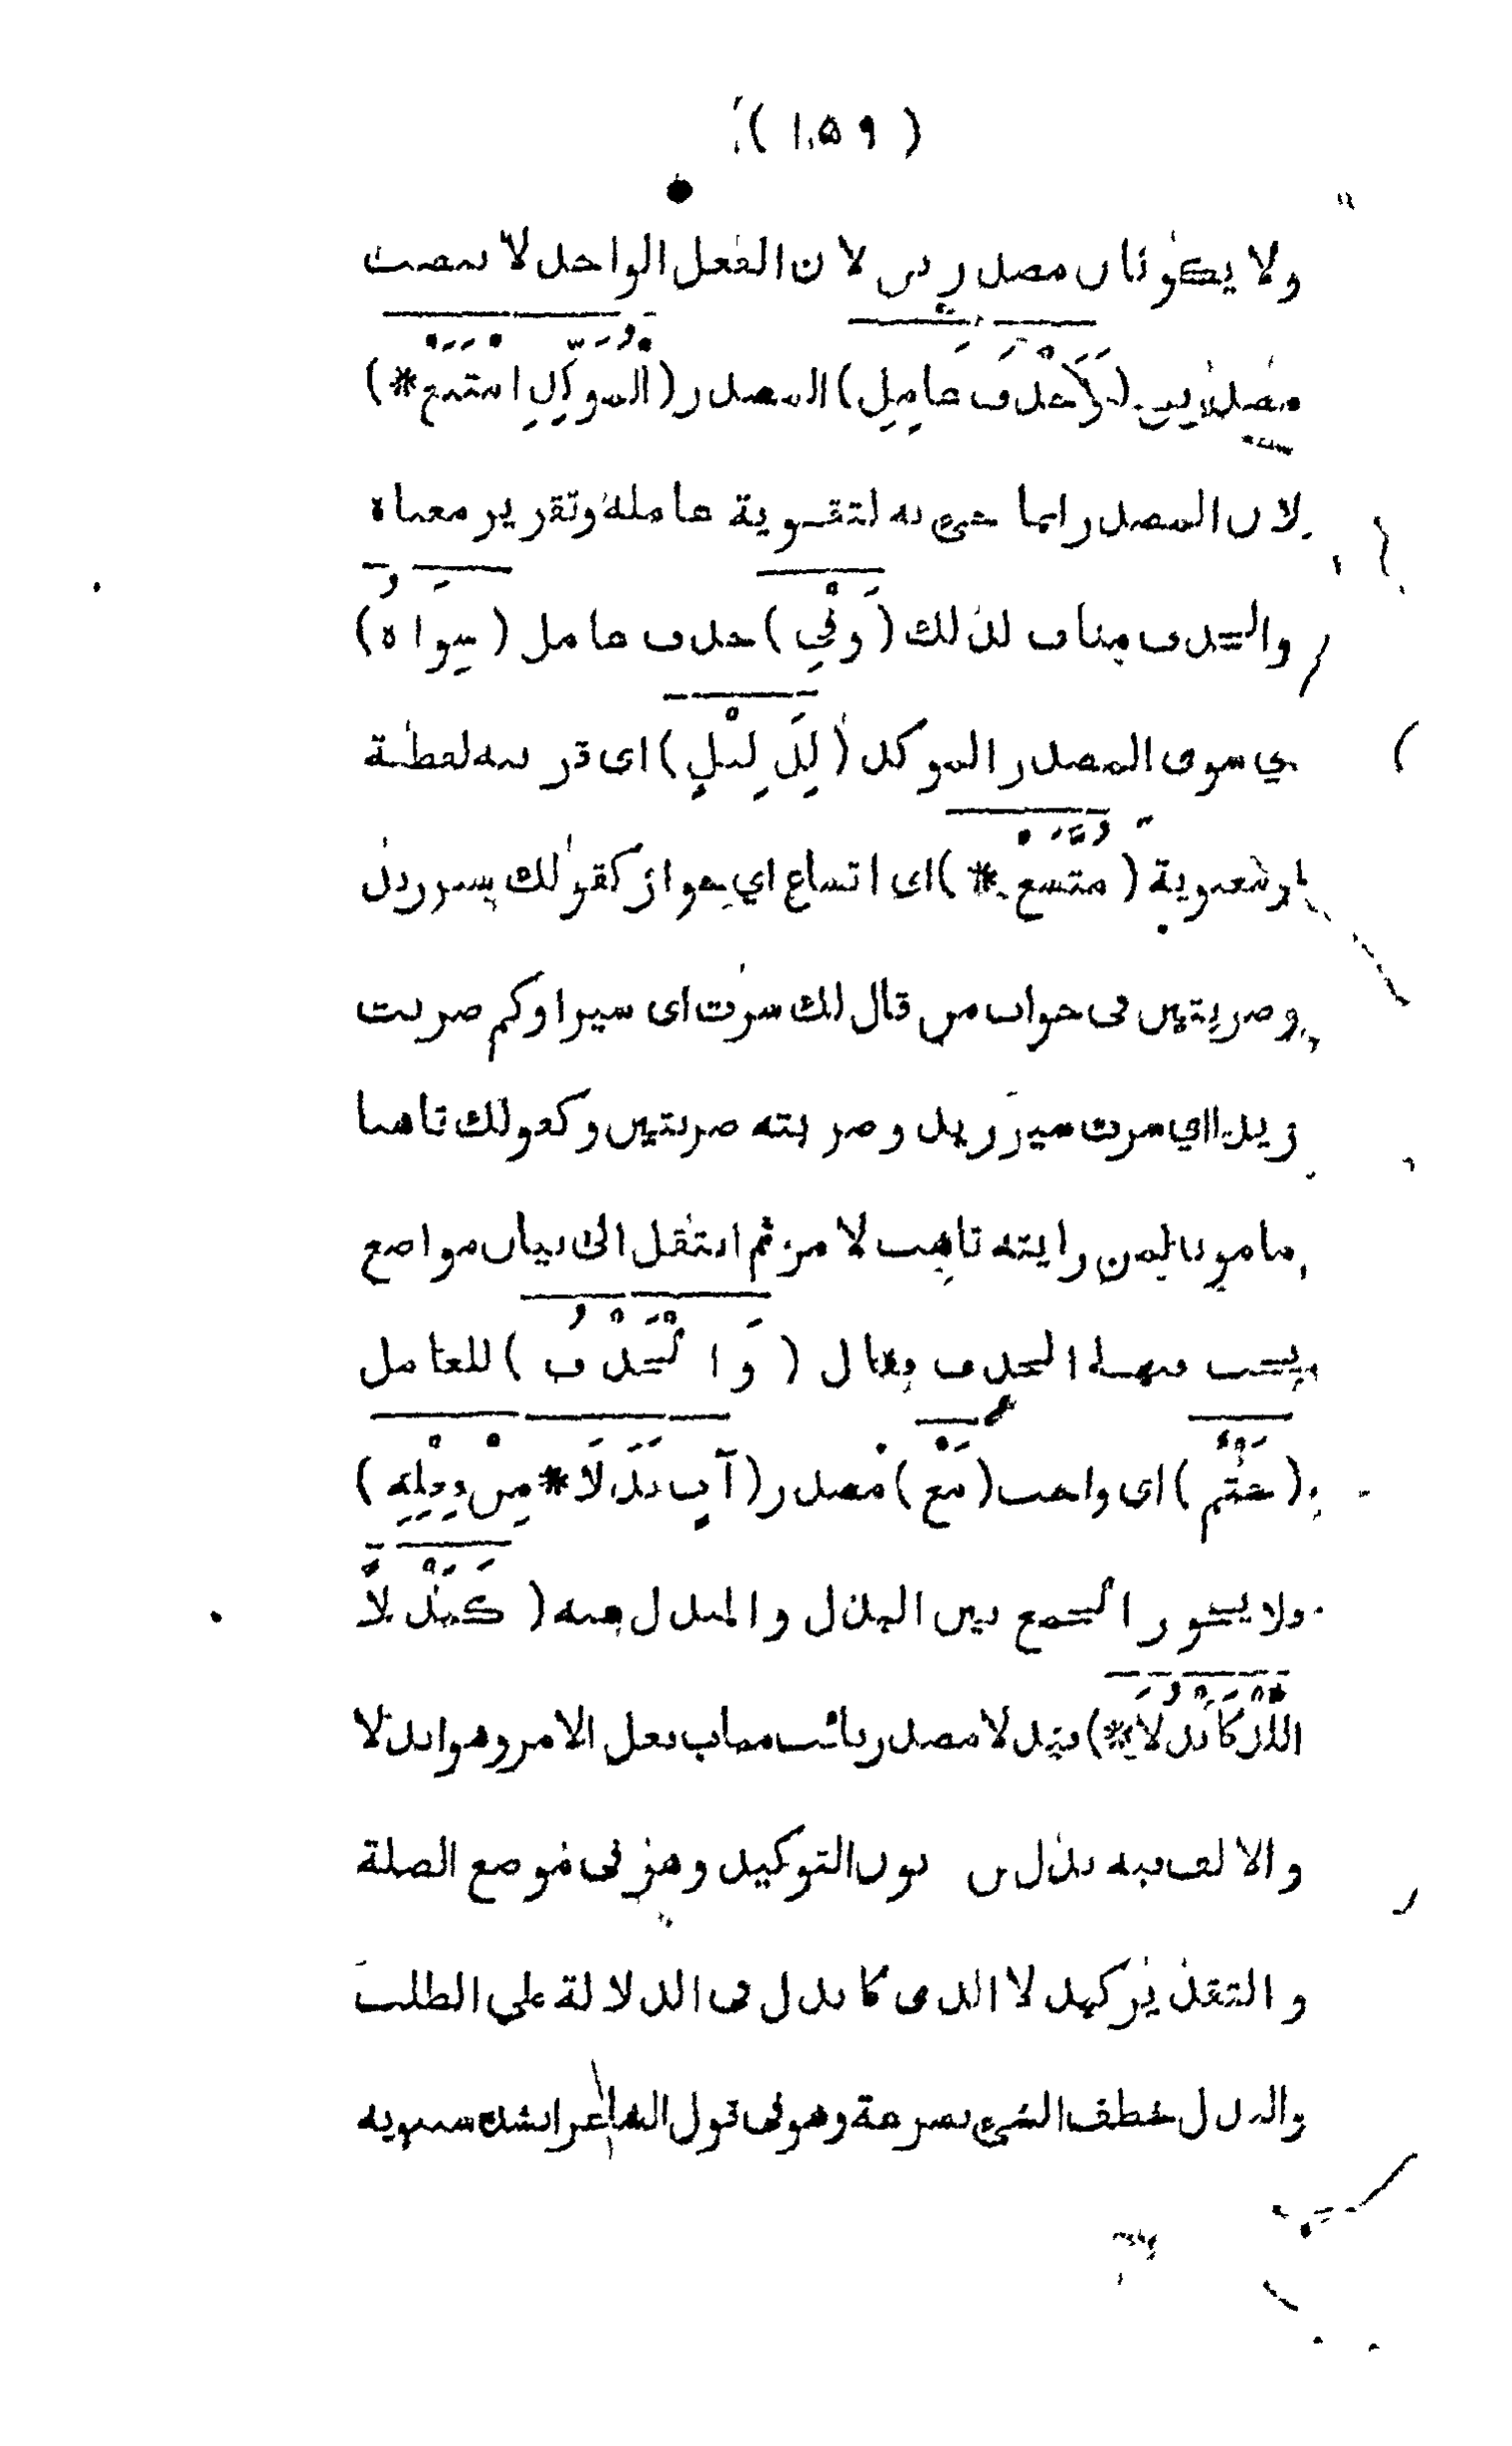 ( ١٥٩ )
ولا يكونان مصدرين لان الفعل الواحد لا ينصب
مصدرين (وَحَذْفُ عَامِلِ) المصدر (الْمُوَكِّدِ امْتَنَعْ *)
لان المصدر انما جىء به لتقوية عامله وتقرير معناه
والحذف مناف لذلك (وَفِي) حذف عامل (سِوَاهُ)
اي سوى المصدر الموكد (لِدَلِيلٍ) اى قرينه لفظية
او معنوية (مُتَّسَعْ *) اى اتساع اي جواز كقولك سير زيد
وضربتين فى جواب من قال لك سرت اى سيرا وكم ضربت
زيدا اي سرت سير زيد وضربته ضربتين وكقولك تاهبا
مامونا لمن رايته تاهب لامر ثم انتقل الى بيان مواضع
يجب فيها الحذف فقال (وَالْحَذْفُ) للعامل
(حَتْمٌ) اى واجب (مَعْ) مصدر (آتٍ بَدَلَا * مِنْ فِعْلِهِ)
ولا يجوز الجمع بين البدل والمبدل منه (كَنَدْلًا
اللَّذْ كَانْدُلَا *) فندلا مصدر نائب مناب فعل الامر وهو اندلا
والالف فيه بدل من نون التوكيد وهو فى موضع الصلة
والتقدير كندلا الذى كاندل فى الدلالة على الطلب
والندل خطف الشيء بسرعة وهو فى قول الشاعر انشده سيبويه